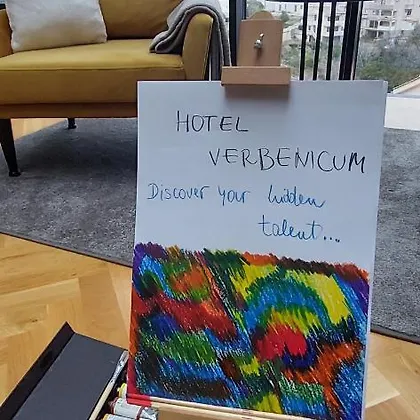 HOTEL
VERBENICUM
Discover your hidden
talent...